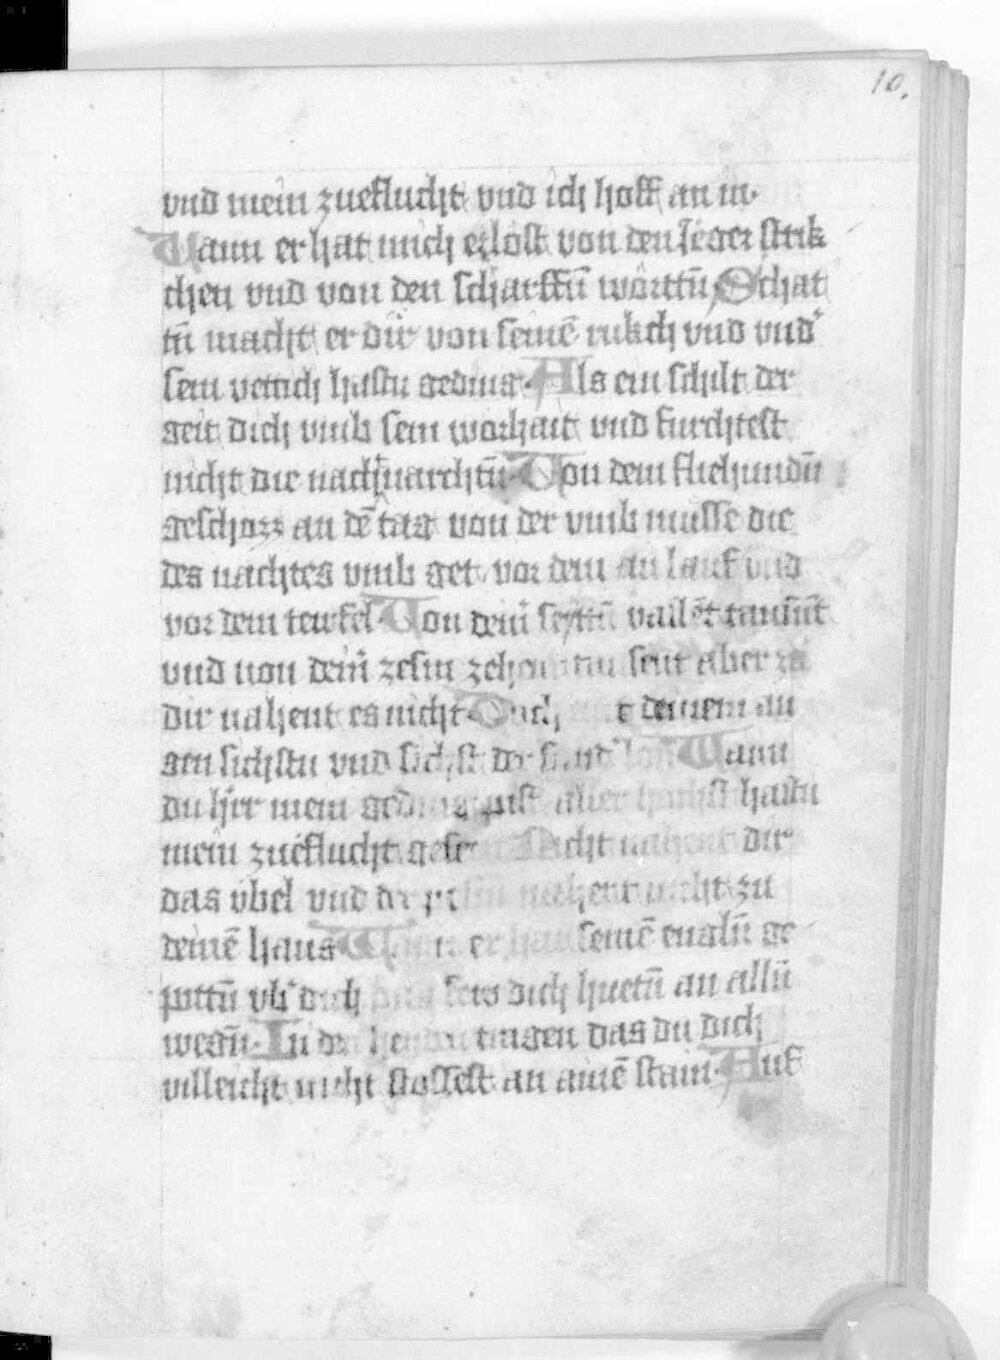 10.
vnd mein zueflucht vnd ich hoff an in·
Wann er hat mich erlöst von den Jeger strik
chen vnd von den scharffn̄ wörttn̄ Schat
tn̄ macht er dir von seinē rukch vnd vnd᷎
sein vettich hastu geding· Als ein schilt der
geit dich vmb sein worhait vnd furchtest
nicht die nachtuarchtn̄ Von dem fliehundn̄
geschozz an dē tag von der vmb müsse die
des nachtes vmb get vor dem an lauf vnd
vor dem teufel· Von dein̄ seyttn̄ vallēt tausūt
vnd von dein̄ zesm sent aber zu
dir nahent es nicht deinem au
gen sichstu vnd sichst der Wann
du h᷎er mein aller hastu
mein zueflucht Nicht nahent dir
das vbel vnd der nahent nicht zu
deinē haus er hat seinē engln̄ ge
pottn̄ vb᷎ dich das seis dich huetn̄ an alln̄
wegn̄· In tragen das du dich
villeicht nicht stossest an ainē stain· Auf